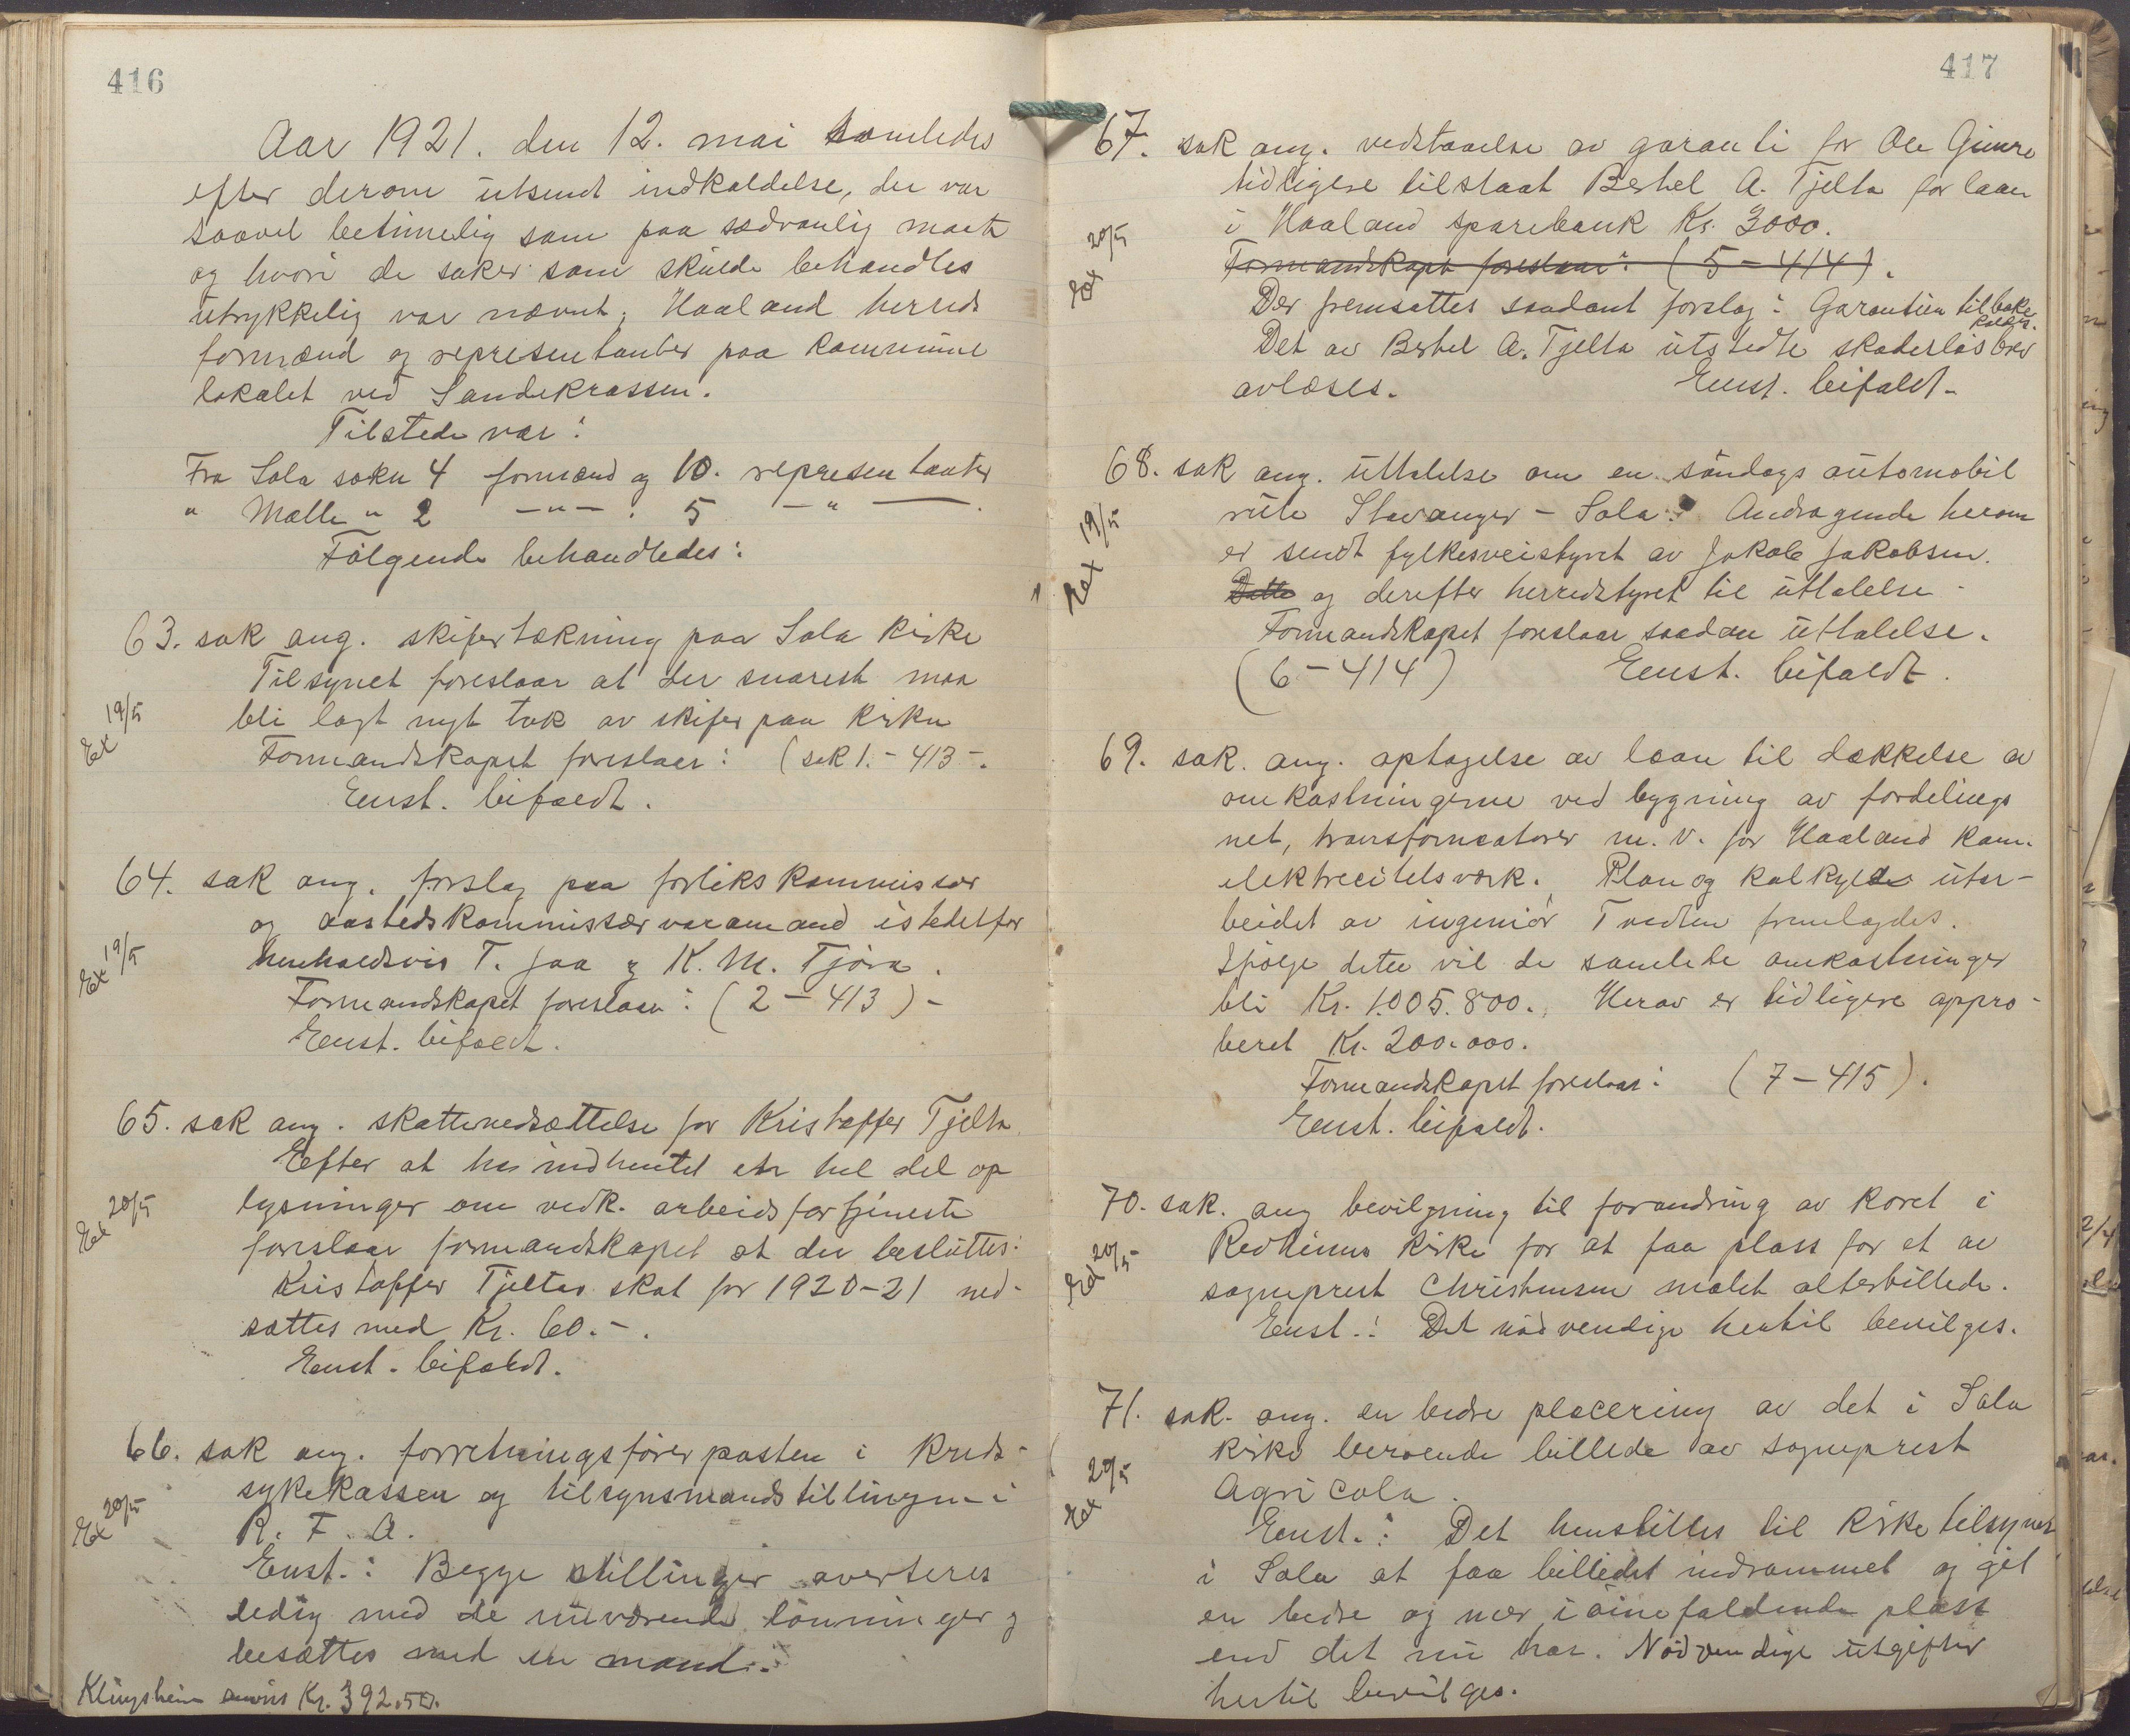 416
Aar 1921. den 12. mai samledes
efter derom utsendt indkaldelse, der var
saavel betimelig som paa sædvanlig maate
og hvori de saker som skulde behandles
utrykkelig var nævnt, Haaland herreds
formænd og representanter paa kommune
lokalet ved Sandekrossen.
Tilstede var:
Fra Sola sokn 4 formænd og 10. representanter
" Malle " 2 —"— . 5 —"—.
Følgende behandledes:
63. sak ang. skifertækning paa Sola kirke
Tilsynet foreslaar at der snarest maa
bli lagt nyt tak av skifer paa kirken
Ex 19/5
Formandskapet foreslaar: (sak 1. - 413 -.
Enst. bifaldt.
64. sak ang. forslag paa forlikskommissær
og aastedskommissær varamand istedetfor
Ex 19/5
henholdsvis T. Jaa og K. M. Tjora.
Formandskapet foreslaar: (2 - 413) -
Enst. bifaldt.
65. sak ang. skattenedsættelse for Kristoffer Tjelta.
Efter at ha indhentet en hel del op
Ex 20/5
lysninger om vedk. arbeidsfortjeneste
foreslaar formandskapet at der besluttes:
Kristoffer Tjeltas skat for 1920-21 ned-
sættes med Kr. 60.-.
Enst. bifaldt.
66. sak ang. forretningsførerposten i kreds-
sykekassen og tilsynsmandstillingen i
Ex 20/5
R. F. A.
Enst.: Begge stillinger averteres
ledig med de nuværende lønninger og
besættes med en mand.
Klingsheim Kr. 392.50.
417
67. sak ang. vedstaaelse av garanti for Ole Gimre
tidligere tilstaat Bertel A. Tjelta for laan
i Haaland sparebank Kr. 3000.
Ex 20/5
Formandskapet foreslaar: (5 - 414).
Der fremsattes saadant forslag: Garantien tilbake
kaldes.
Det av Bertel A. Tjelta utstedte skadesløsbrev
avlæses. Enst. bifaldt.
68. sak ang. uttalelse om en søndags automobil
rute Stavanger - Sola. Andragende herom
Ex 19/5
er sendt fylkesveistyret av Jakob Jakobsen.
Dette og derefter herredstyret til uttalelse -
Formandskapet foreslaar saadan uttalelse.
(6 - 414) Enst. bifaldt.
69. sak. ang. optagelse av laan til dækkelse av
omkostningerne ved bygning av fordelings
net, transformatorer m. v. for Haaland kom.
elektrecitetsverk. Plan og kalkyle utar-
beidet av ingeniør Tvedten fremlagdes.
Ifølge dette vil de samlede omkostninger
bli Kr. 1.005.800. Herav er tidligere appro-
beret Kr. 200.000.
Formandskapet foreslaar: (7 - 415).
Enst. bifaldt.
70. sak. ang bevilgning til forandring av koret i
Ex 20/5
kirke for at faa plass for et av
sogneprest Christensen malet alterbillede.
Enst.: Det nødvendige hertil bevilges.
71. sak. ang. en bedre placering av det i Sola
kirke beroende billede av sogneprest
Ex 20/5
Agricola.
Enst.: Det henstilles til kirketilsynet
i Sola at faa billedet indrammet og git
en bedre og mer iøinefaldende plass
end det nu har. Nødvendige utgifter
hertil bevilges.